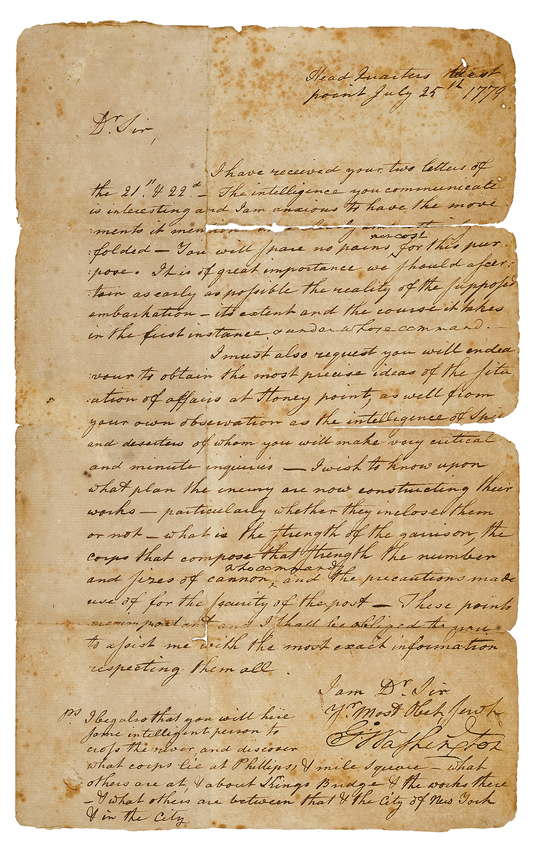 Head Quarters West
point July 25th 1779
Dr Sir,
I have received your two letters of
the 21st & 22d – The intelligence you communicate
is interesting and I am anxious to have the move
ments it
folded – You will spare no pains nor cost for this pur
pose. It is of great importance we should ascer
tain as early as possible the reality of the supposed
embarkation – its extent and the course it takes
in the first instance & under whose command.
I must also request you will endea
vour to obtain the most precise ideas of the situ
ation of affairs at Stoney point, as well from
your own observation as the intelligence of Spies
and deserters of whom you will make very critical
and minute inquiries – I wish to know upon
what plan the enemy are now constructing their
works – particularly whether they inclose them
or not – what is the strength of the garrison, the
corps that compose that strength the number
and sizes of cannon, who commands, and the precautions made
use of for the security of the post – These points
are important and I shall be obliged to you
to assist me with the most exact information
respecting them all.
I am Dr. Sir
Yr. Most Obet. Servt.
Go Washington
ps I beg also that you will hire
some intelligent person to
cross the river, and discover
what corps lie at Phillips, & mile Square – what
others are at & about Kings Bridge & the works there
– & what others are between that & the City of New York
& in the City